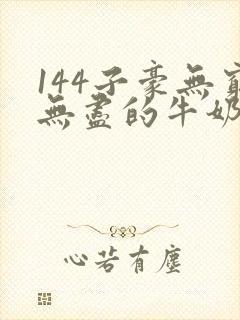 144子豪無窮
無盡的牛奶
心若有塵